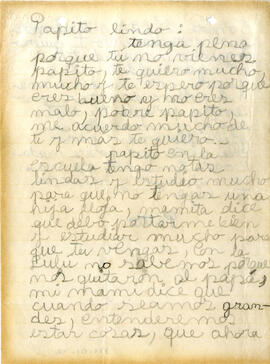 Papito lindo:
tengo pena
porque tú no vienes
papito, te quiero mucho,
mucho y te espero porque
eres bueno y no eres
malo, pobre papito,
me acuerdo mucho de
te y mas te quiero.
papito en la
escuela tengo notas
lindas y estudio mucho
para que no tengas una
hija floja, mamita dice
que debo portarme bien
y estudiar mucho para
que tu vengas, con la
Lulu no sabemos porque
nos quitaron al papá,
mi mami dice que
cuando seamos gran-
des, entenderemos
estar cosas, que ahora